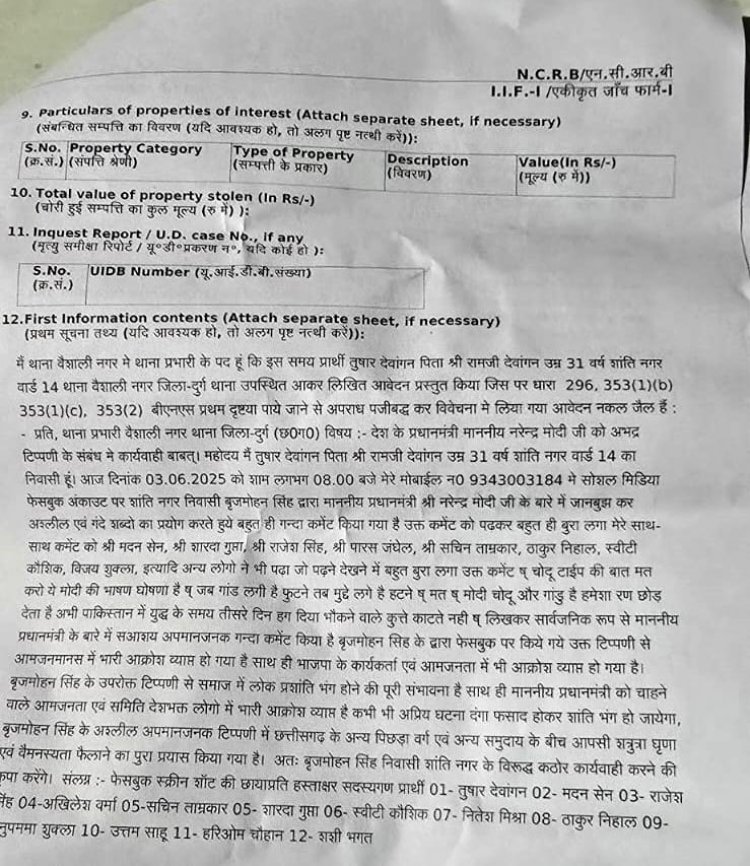 N.C.R.B/एन.सी.आर.बी
I.I.F.-I /एकीकृत जाँच फार्म-I
9. Particulars of properties of interest (Attach separate sheet, if necessary)
(संबन्धित सम्पत्ति का विवरण (यदि आवश्यक हो, तो अलग पृष्ट नत्थी करें)):
S.No. Property Category Type of Property Description Value(In Rs/-)
(क्र.सं.) (संपत्ति श्रेणी) (सम्पत्ती के प्रकार) (विवरण) (मूल्य (रु में))
10. Total value of property stolen (In Rs/-)
(चोरी हुई सम्पत्ति का कुल मूल्य (रु में) ):
11. Inquest Report / U.D. case No., if any
(मृत्यु समीक्षा रिपोर्ट / यू०डी०प्रकरण न०, यदि कोई हो ):
S.No. UIDB Number (यू.आई.डी.बी.संख्या)
(क्र.सं.)
12.First Information contents (Attach separate sheet, if necessary)
(प्रथम सूचना तथ्य (यदि आवश्यक हो, तो अलग पृष्ट नत्थी करें)):
मैं थाना वैशाली नगर मे थाना प्रभारी के पद हूं कि इस समय प्रार्थी तुषार देवांगन पिता श्री रामजी देवांगन उम्र 31 वर्ष शांति नगर
वार्ड 14 थाना वैशाली नगर जिला-दुर्ग थाना उपस्थित आकर लिखित आवेदन प्रस्तुत किया जिस पर धारा 296, 353(1)(b)
353(1)(c), 353(2) बीएनएस प्रथम दृष्टया पाये जाने से अपराध पजीबद्ध कर विवेचना मे लिया गया आवेदन नकल जैल हैं :
- प्रति, थाना प्रभारी वैशाली नगर थाना जिला-दुर्ग (छ0ग0) विषय :- देश के प्रधानमंत्री माननीय नरेन्द्र मोदी जी को अभद्र
टिप्पणी के संबंध मे कार्यवाही बाबत्। महोदय मैं तुषार देवांगन पिता श्री रामजी देवांगन उम्र 31 वर्ष शांति नगर वार्ड 14 का
निवासी हूं। आज दिनांक 03.06.2025 को शाम लगभग 08.00 बजे मेरे मोबाईल न0 9343003184 मे सोशल मिडिया
फेसबुक अंकाउट पर शांति नगर निवासी बृजमोहन सिंह द्वारा माननीय प्रधानमंत्री श्री नरेन्द्र मोदी जी के बारे में जानबुझ कर
अश्लील एवं गंदे शब्दो का प्रयोग करते हुये बहुत ही गन्दा कमेंट किया गया है उक्त कमेंट को पढकर बहुत ही बुरा लगा मेरे साथ-
साथ कमेंट को श्री मदन सेन, श्री शारदा गुप्ता, श्री राजेश सिंह, श्री पारस जंघेल, श्री सचिन ताम्रकार, ठाकुर निहाल, स्वीटी
कौशिक, विजय शुक्ला, इत्यादि अन्य लोगो ने भी पढा जो पढ़ने देखने में बहुत बुरा लगा उक्त कमेंट ष् चोदू टाईप की बात मत
करो ये मोदी की भाषण घोषणा है ष् जब गांड लगी है फुटने तब मुद्दे लगे है हटने ष् मत ष् मोदी चोदू और गांडु है हमेशा रण छोड
देता है अभी पाकिस्तान में युद्ध के समय तीसरे दिन हग दिया भौकने वाले कुत्ते काटते नही ष् लिखकर सार्वजनिक रूप से माननीय
प्रधानमंत्री के बारे में सआशय अपमानजनक गन्दा कमेंट किया है बृजमोहन सिंह के द्वारा फेसबुक पर किये गये उक्त टिप्पणी से
आमजनमानस में भारी आक्रोश व्याप्त हो गया है साथ ही भाजपा के कार्यकर्ता एवं आमजनता में भी आक्रोश व्याप्त हो गया है।
बृजमोहन सिंह के उपरोक्त टिप्पणी से समाज में लोक प्रशांति भंग होने की पूरी संभावना है साथ ही माननीय प्रधानमंत्री को चाहने
वाले आमजनता एवं समिति देशभक्त लोगो में भारी आक्रोश व्याप्त है कभी भी अप्रिय घटना दंगा फसाद होकर शांति भंग हो जायेगा,
बृजमोहन सिंह के अश्लील अपमानजनक टिप्पणी में छत्तीसगढ़ के अन्य पिछड़ा वर्ग एवं अन्य समुदाय के बीच आपसी शत्रुत्रा घृणा
एवं वैमनस्यता फैलाने का पुरा प्रयास किया गया है। अतः बृजमोहन सिंह निवासी शांति नगर के विरूद्ध कठोर कार्यवाही करने की
कृपा करेंगे। संलग्न :- फेसबुक स्क्रीन शॉट की छायाप्रति हस्ताक्षर सदस्यगण प्रार्थी 01- तुषार देवांगन 02- मदन सेन 03- राजेश
सिंह 04-अखिलेश वर्मा 05-सचिन ताम्रकार 05- शारदा गुप्ता 06- स्वीटी कौशिक 07- नितेश मिश्रा 08- ठाकुर निहाल 09-
नुपममा शुक्ला 10- उत्तम साहू 11- हरिओम चौहान 12- शशी भगत